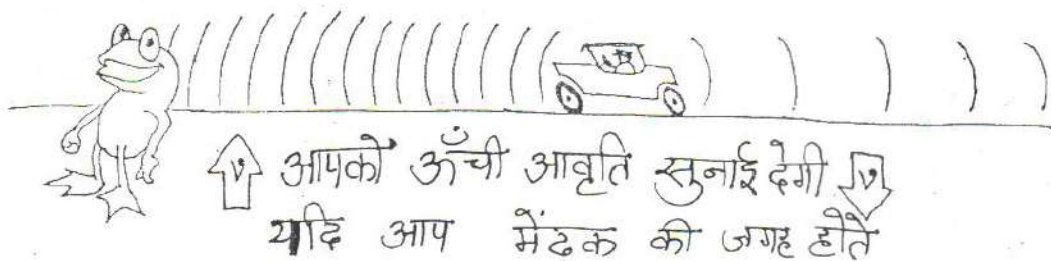 आपको ऊँची आवृति सुनाई देगी
यदि आप मेंढक की जगह होते